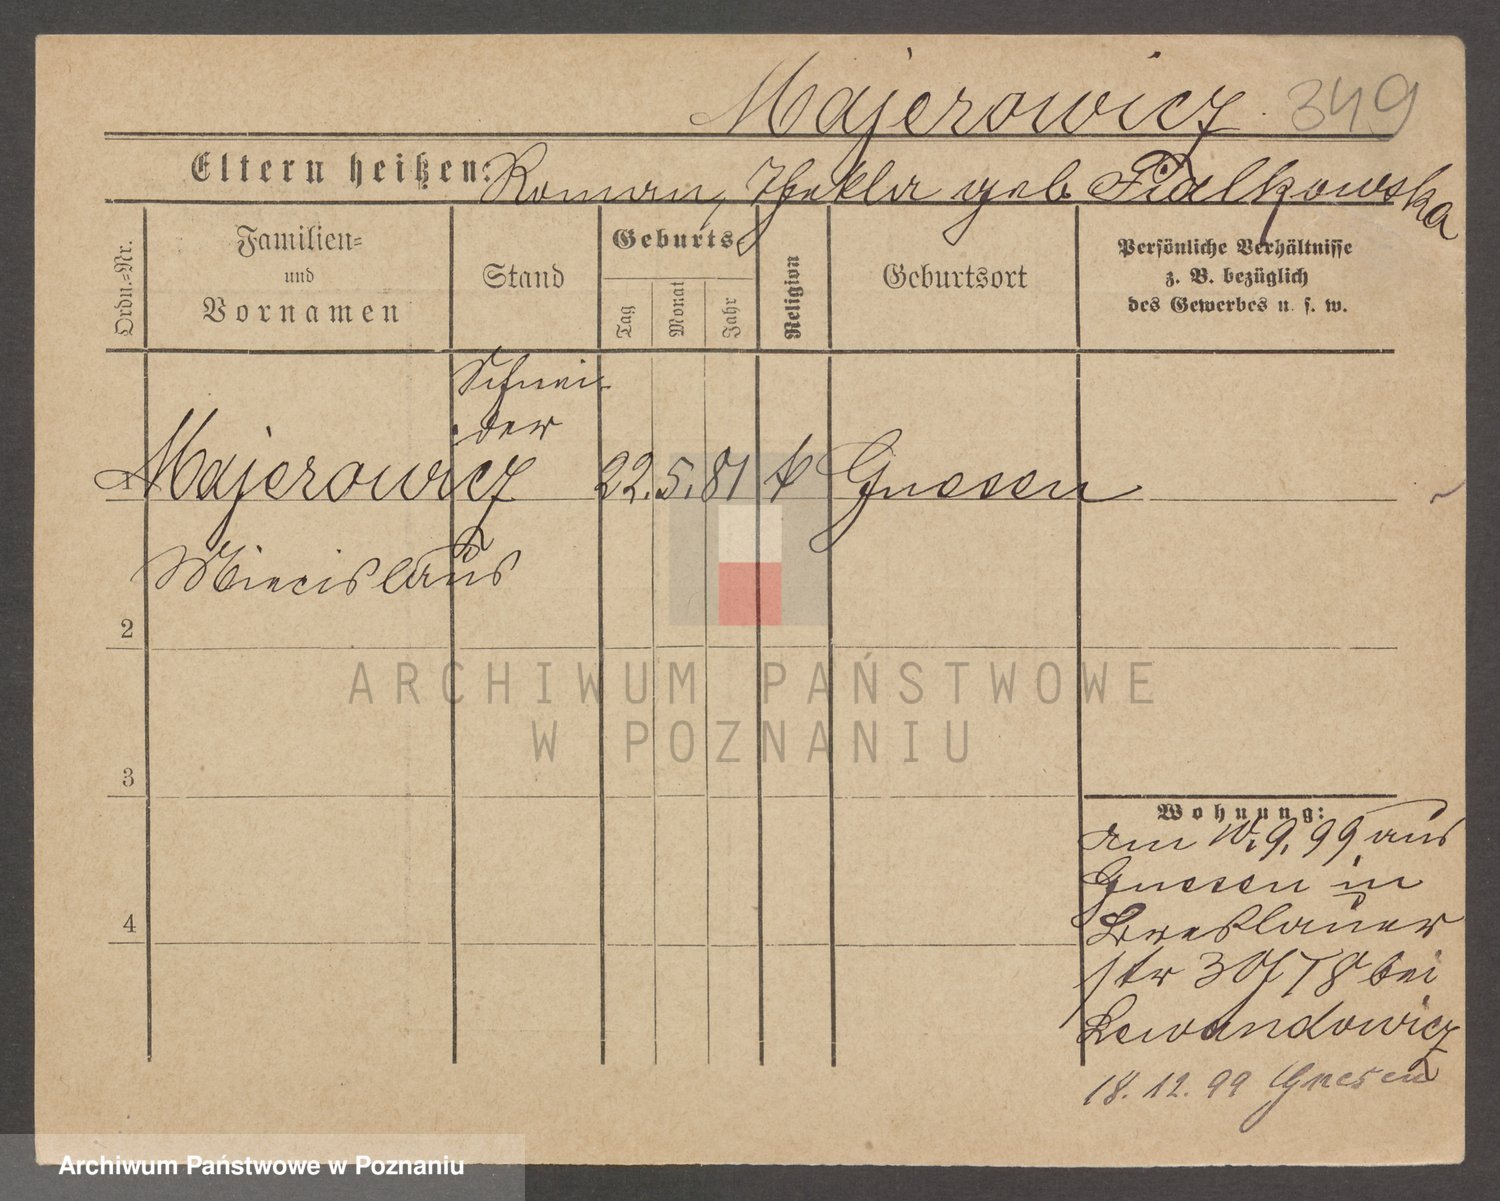 Majerowicz. 349
Eltern heißen: Roman, Thekla geb. Fialkowska
Ordn.-Nr.
Familien-
und
Vornamen
Stand
Geburts-
Tag
Monat
Jahr
Religion
Geburtsort
Persönliche Verhältnisse
z. B. bezüglich
des Gewerbes u. s. w.
Schnei-
der
1 Majerowicz 22. 5. 81 k Gnesen
Miecislaus
2
3
4
Wohnung:
am 10. 9. 99 aus
Gnesen in
Breslauer
str bei
Lewandowicz
18. 12. 99 Gnesen
ARCHIWUM PAŃSTWOWE
W POZNANIU
Archiwum Państwowe w Poznaniu